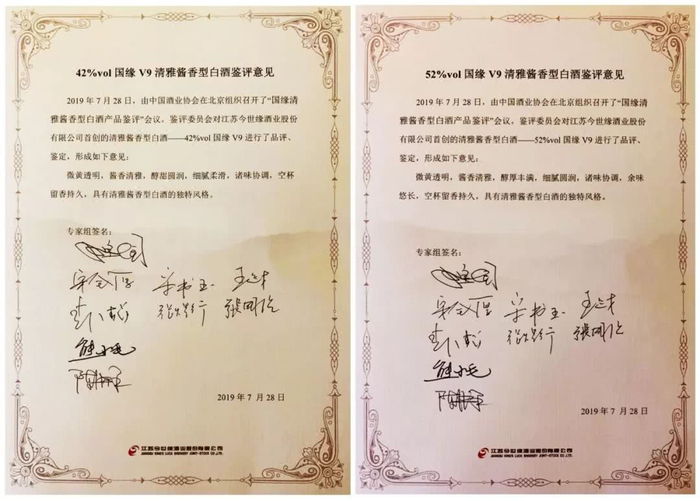 42%vol 国缘 V9 清雅酱香型白酒鉴评意见
2019 年 7 月 28 日，由中国酒业协会在北京组织召开了“国缘清
雅酱香型白酒产品鉴评”会议，鉴评委员会对江苏今世缘酒业股份
有限公司首创的清雅酱香型白酒——42%vol 国缘 V9 进行了品评、
鉴定，形成如下意见：
微黄透明，酱香清雅，醇甜圆润，细腻柔滑，诸味协调，空杯
留香持久，具有清雅酱香型白酒的独特风格。
专家组签名：
2019 年 7 月 28 日
江苏今世缘酒业股份有限公司
JIANGSU KING'S LUCK BREWERY JOINT-STOCK CO., LTD.
52%vol 国缘 V9 清雅酱香型白酒鉴评意见
2019 年 7 月 28 日，由中国酒业协会在北京组织召开了“国缘清
雅酱香型白酒产品鉴评”会议，鉴评委员会对江苏今世缘酒业股份
有限公司首创的清雅酱香型白酒——52%vol 国缘 V9 进行了品评、
鉴定，形成如下意见：
微黄透明，酱香清雅，醇厚丰满，细腻圆润，诸味协调，余味
悠长，空杯留香持久，具有清雅酱香型白酒的独特风格。
专家组签名：
2019 年 7 月 28 日
江苏今世缘酒业股份有限公司
JIANGSU KING'S LUCK BREWERY JOINT-STOCK CO., LTD.